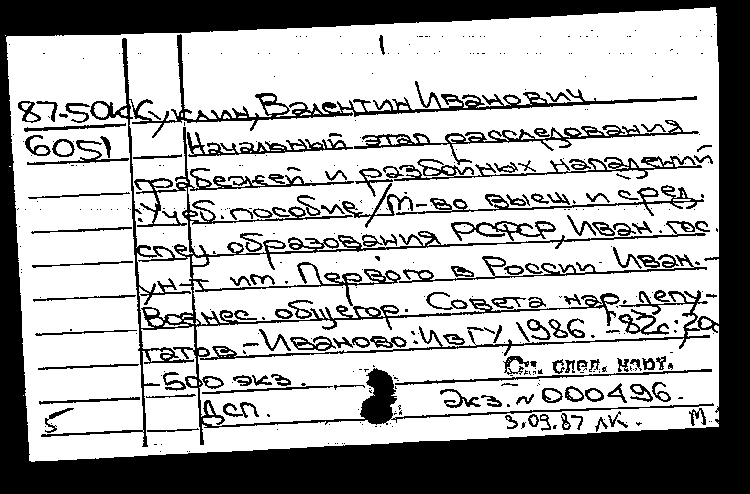 87-50к Куклин, Валентин Иванович.
6051 Начальный этап расследования
грабежей и разбойных нападений
: Учеб. пособие / М-во высш. и сред.
спец. образования РСФСР, Иван. гос.
ун-т им. Первого в России Иван.-
Вознес. общегор. Совета нар. депу-
татов.-Иваново: ИвГУ, 1986. -82с.; 20
-500 экз. См. след. карт.
ДСП. Экз. N 000496.
5 3.09.87 ЛК. М.